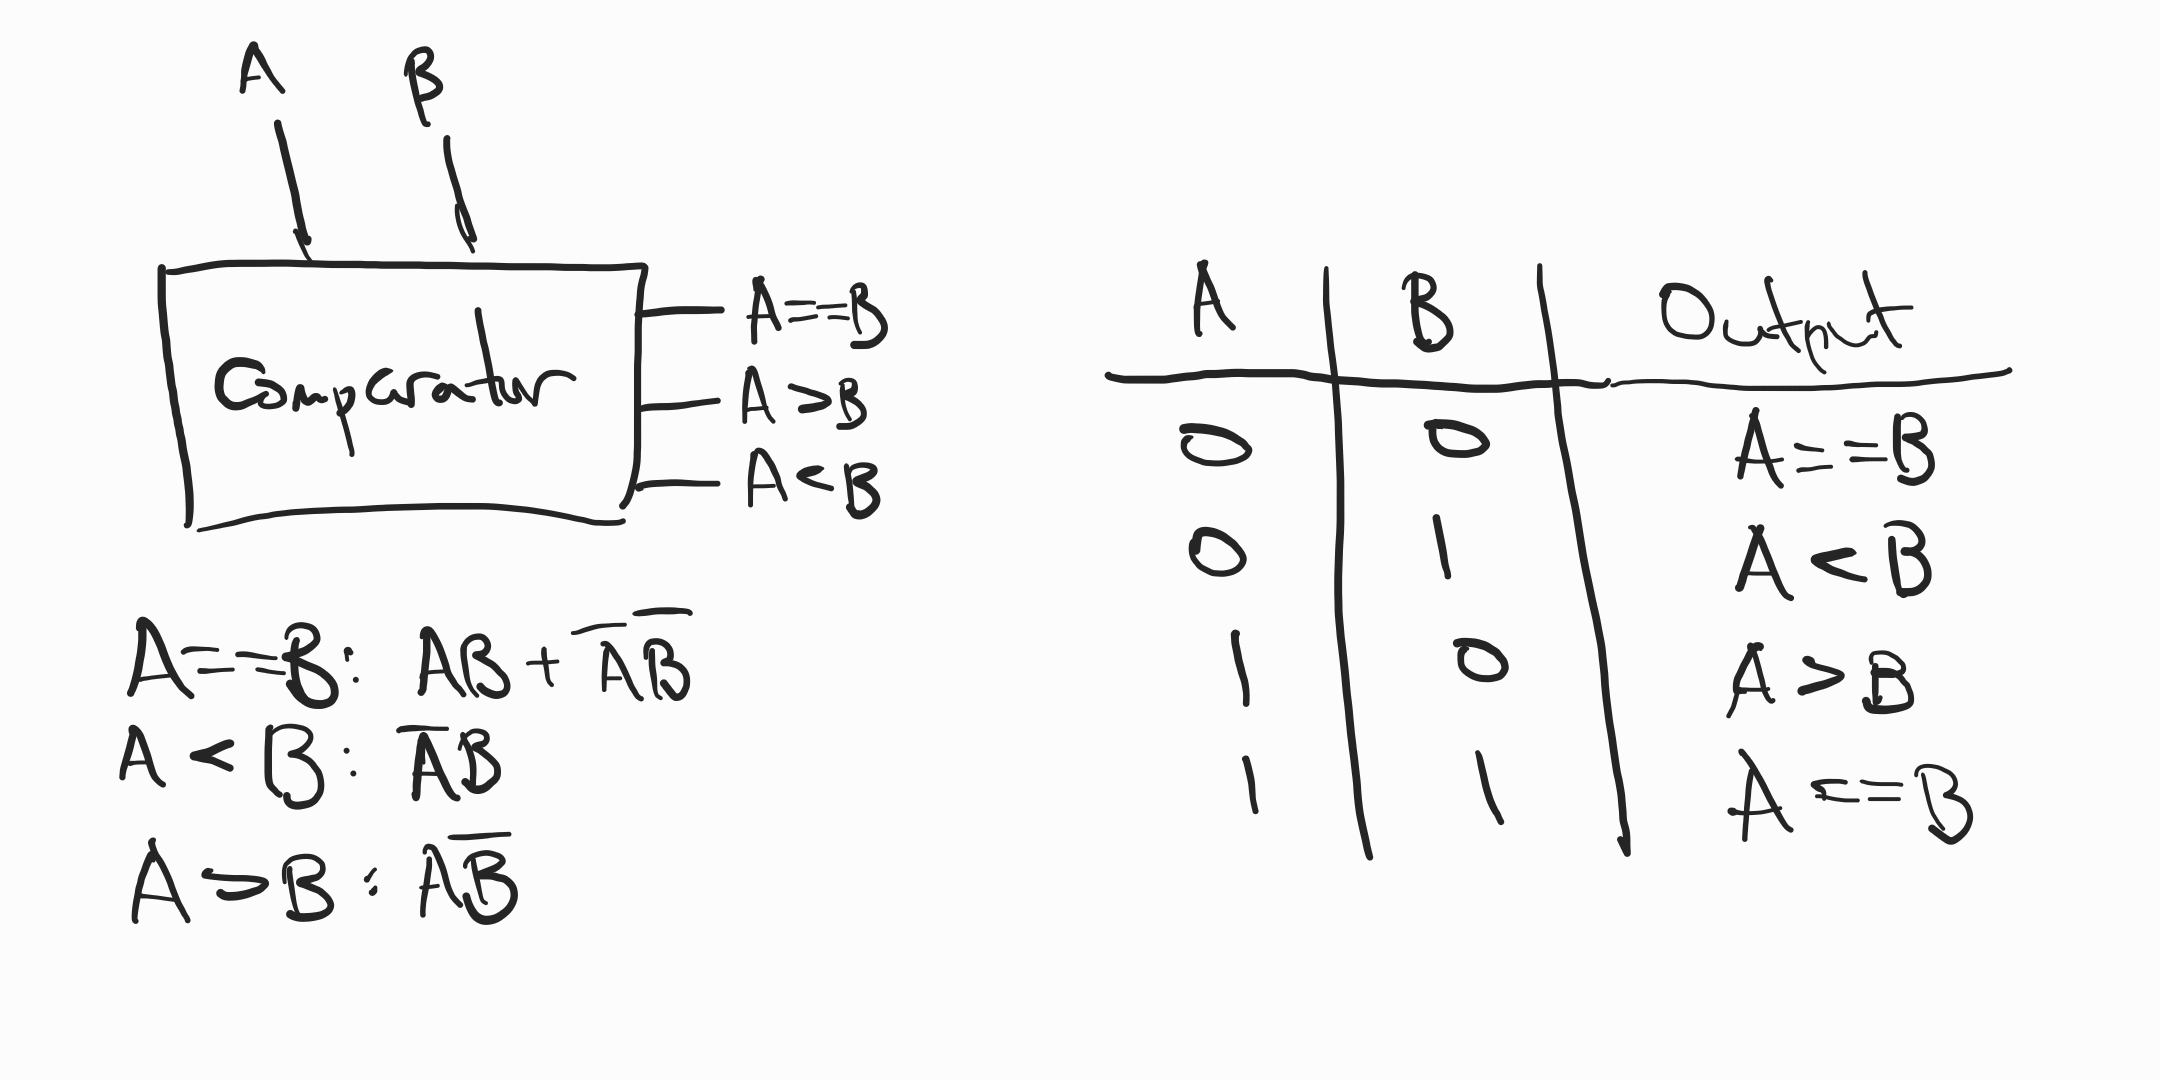 A B
Comparator
A==B
A>B
A<B
A==B: AB + A̅ B̅
A < B: A̅B
A > B : AB̅
A B Output
0 0 A==B
0 1 A < B
1 0 A > B
1 1 A == B